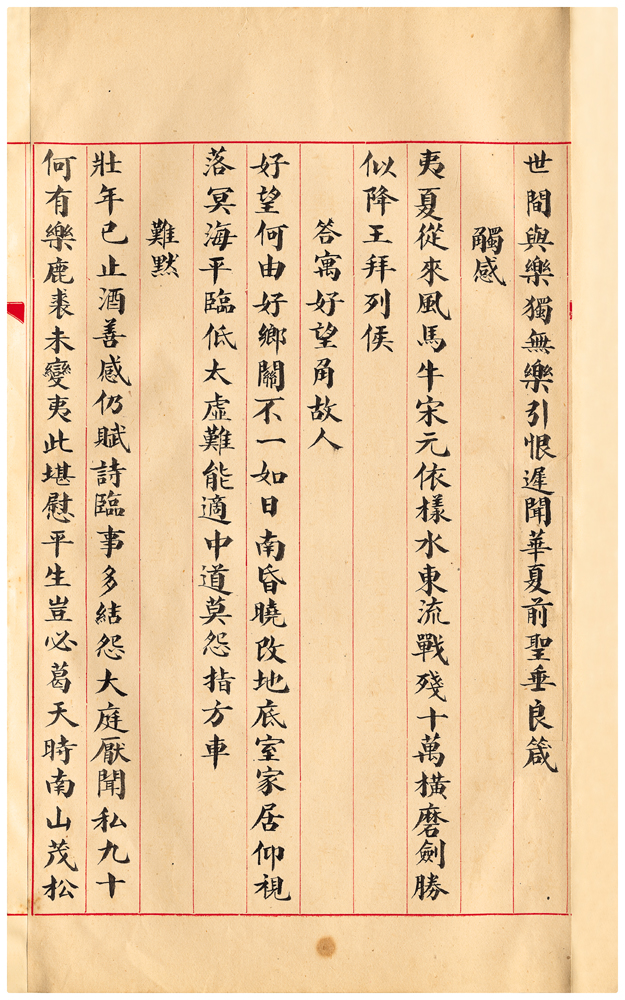 世間與樂獨無樂引恨遲聞華夏前聖垂良箴
觸感
夷夏從來風馬牛宋元依樣水東流戰殘十萬橫磨劍勝
似降王拜列侯
答寓好望角故人
好望何由好鄉關不一如日南昏曉改地底室家居仰視
落冥海平臨低太虛難能適中道莫怨指方車
難默
壯年已止酒善感仍賦詩臨事多結怨大庭厭聞私九十
何有樂鹿裘未變夷此堪慰平生豈必葛天時南山茂松